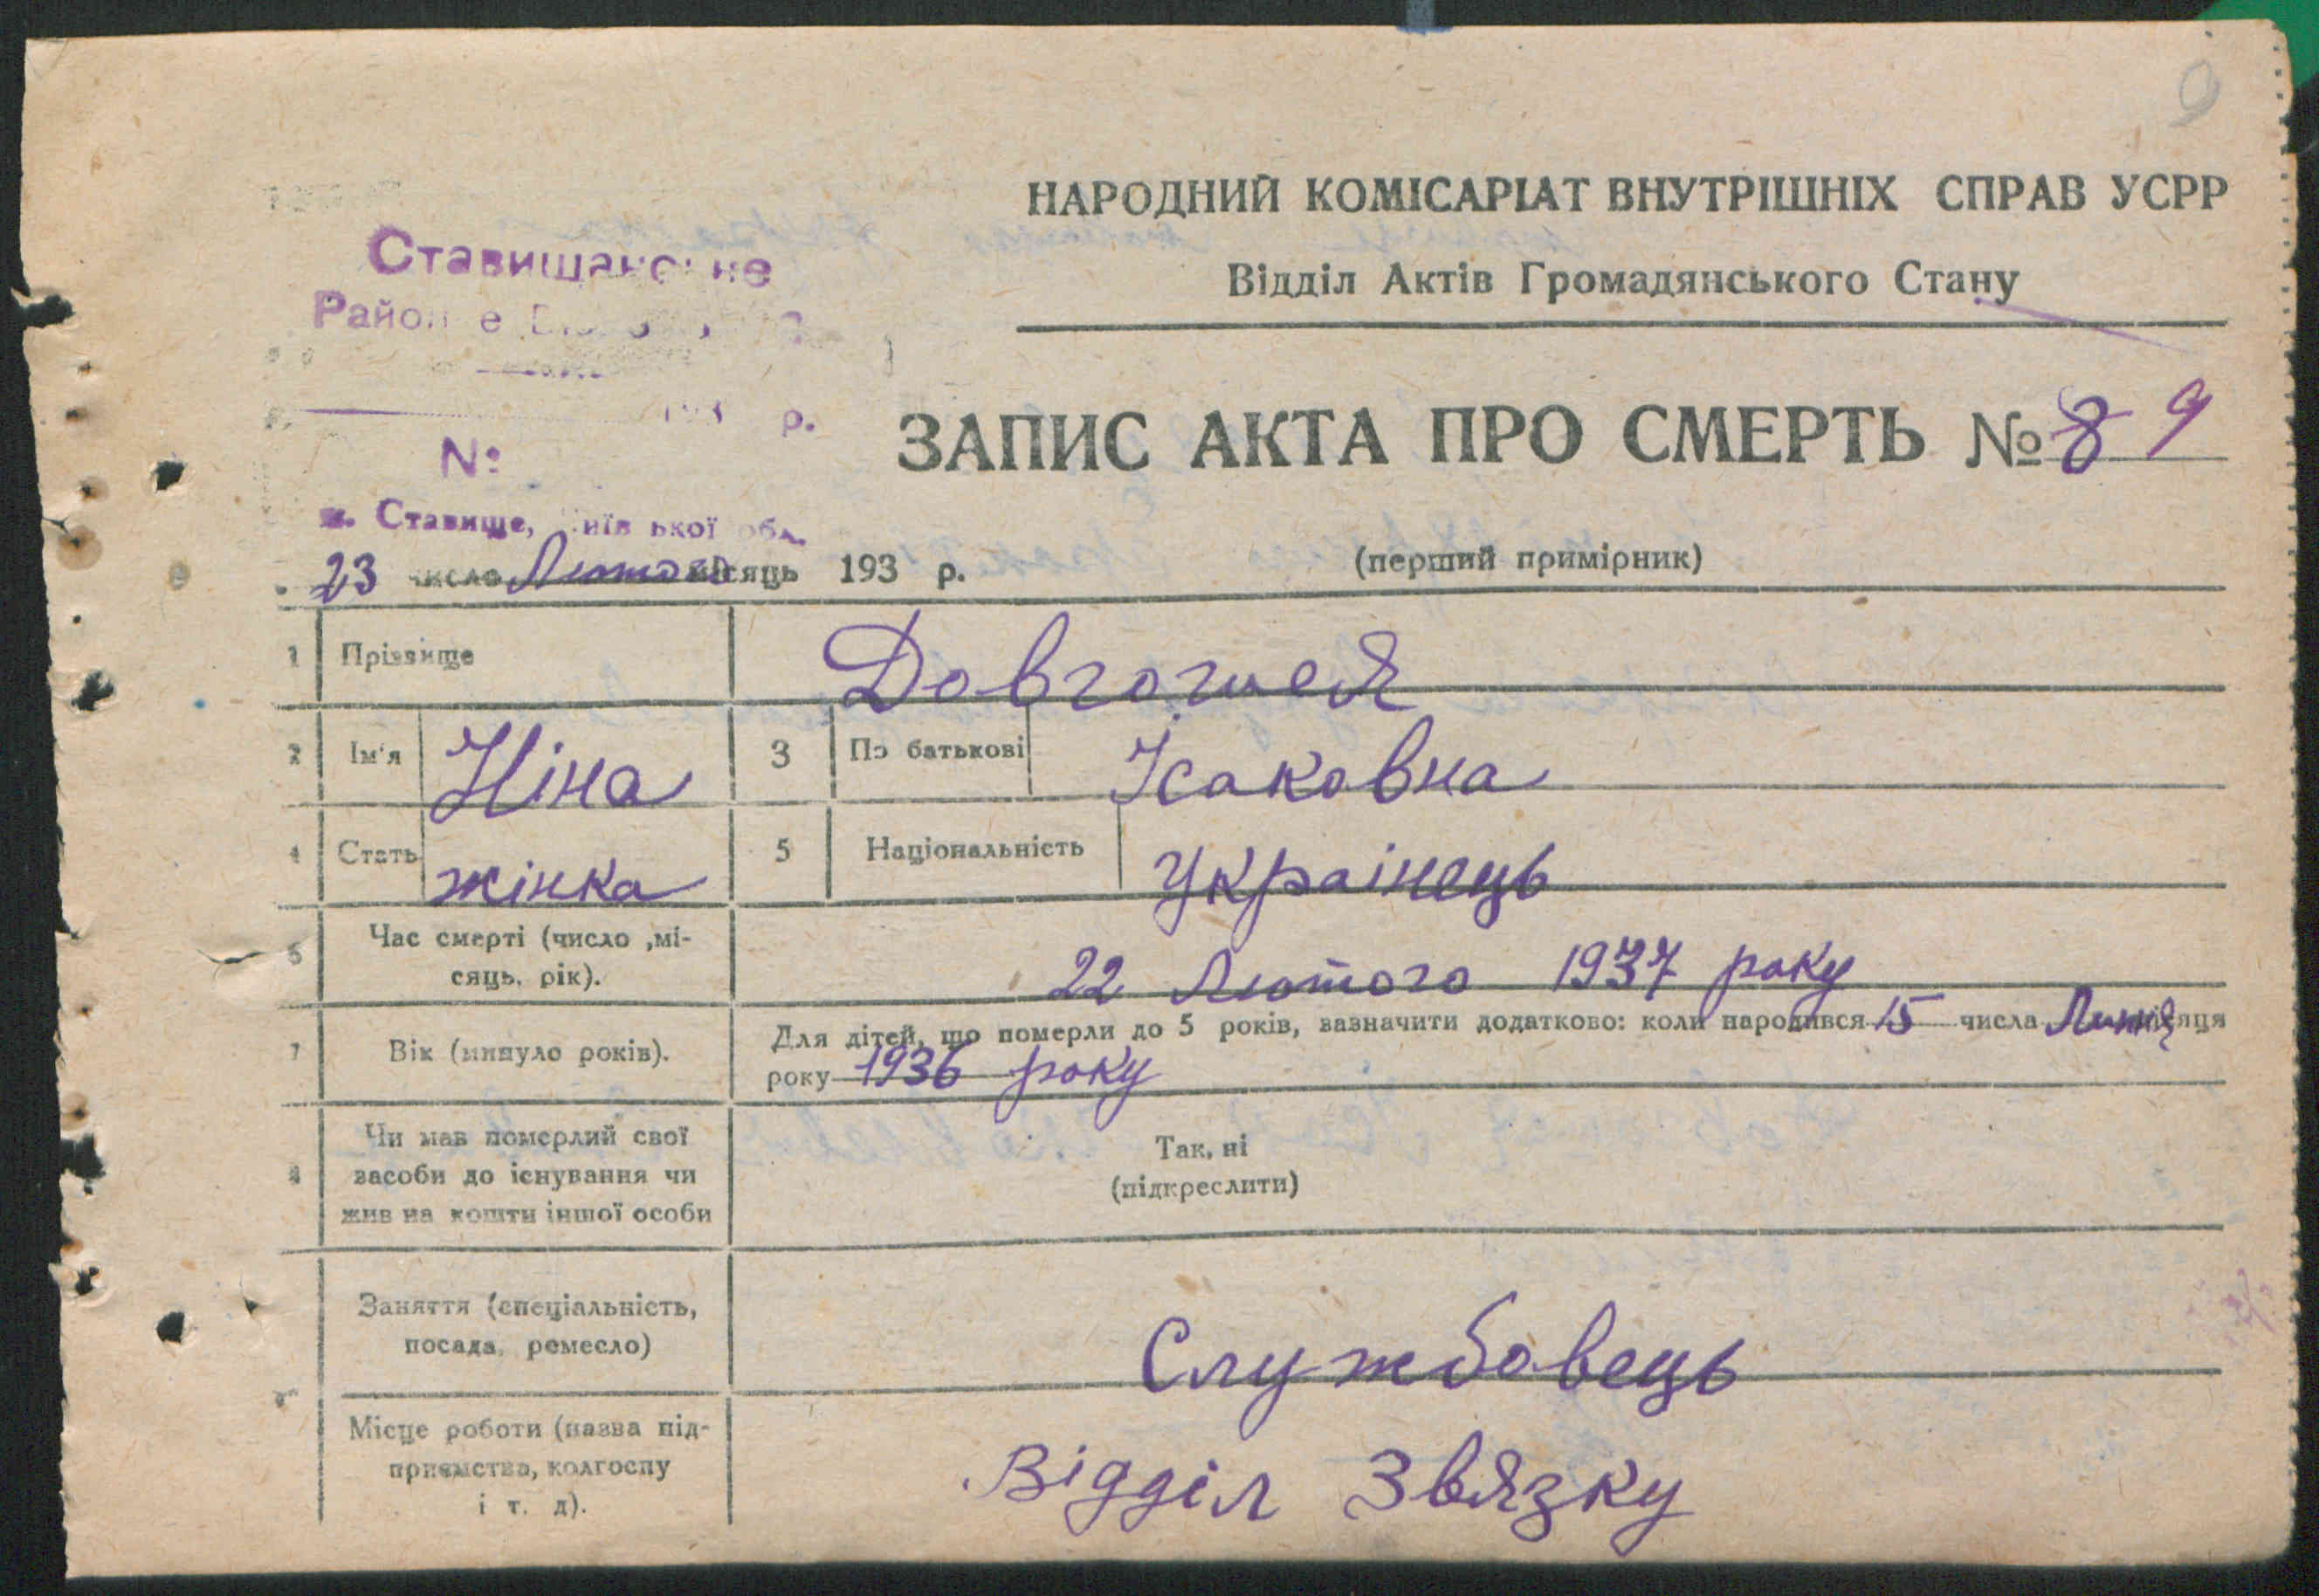 9
НАРОДНИЙ КОМІСАРІАТ ВНУТРІШНІХ СПРАВ УСРР
Відділ Актів Громадянського Стану
Районне
193 р.
№
м. Ставище, Київської обл.
ЗАПИС АКТА ПРО СМЕРТЬ № 89
(перший примірник)
23 число Лютого місяць 193 р.
1 Прізвище Довгошея
2 Ім'я Ніна 3 По батькові Ісаковна
4 Стать жінка 5 Національність Українець
6 Час смерті (число ,мі-
сяць, рік). 22 Лютого 1937 року
7 Вік (минуло років). Для дітей, що померли до 5 років, зазначити додатково: коли народився 15 числа Липня місяця
року 1936 року
8 Чи мав померлий свої
засоби до існування чи
жив на кошти іншої особи
Так, ні
(підкреслити)
Заняття (спеціальність,
посада, ремесло) Службовець
Місце роботи (назва під-
приємства, колгоспу
і т. д). Відділ Звязку